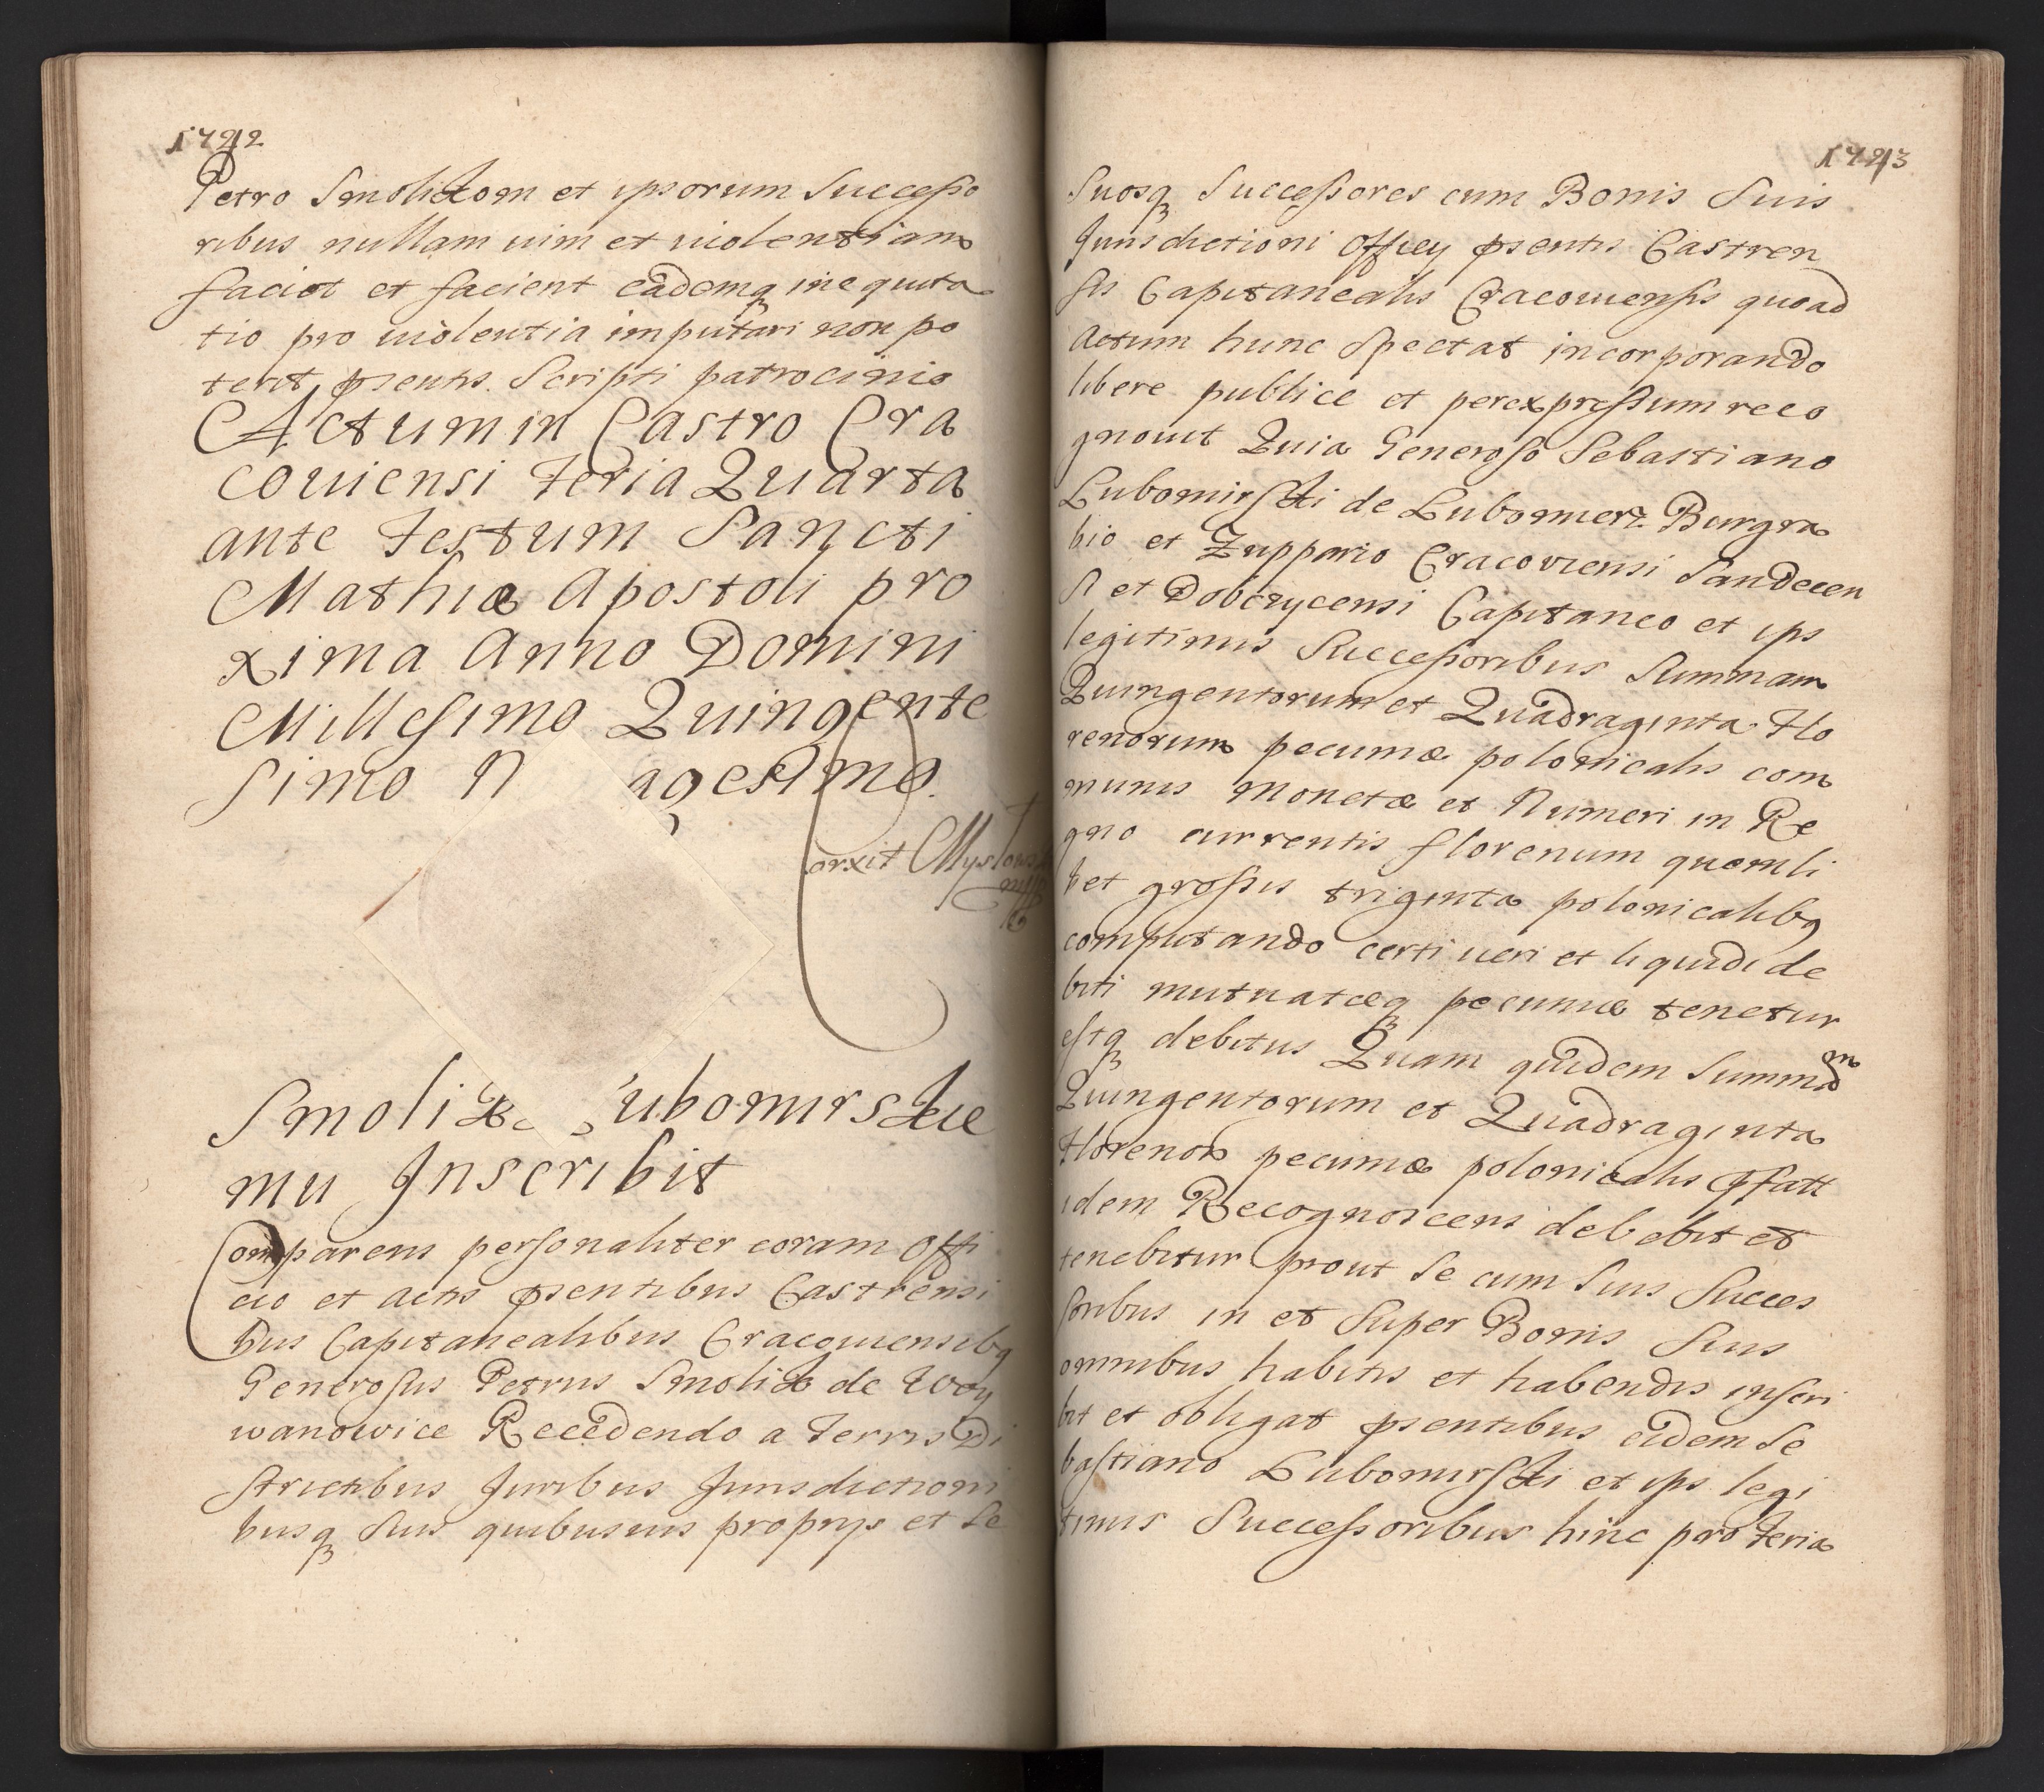 1722
Petro Smolikom et ipsorum Successo
ribus nullam uim et uiolentiam
faciet et facient eademq inequita
tio pro uiolentia imputari non po
terit psentis Scripti patrocinio
Actum in Castro Cra
couiensi Feria Quarta
ante Festum Sancti
Mathiæ Apostoli pro
xima Anno Domini
Millesimo Quingente
simo N agesimo.
orxit Myslows
Smolik ubomirskie
mu Inscribit
Comparens personaliter coram Offi
cio et actis psentibus Castrensi
bus Capitanealibus Cracouiensibq
Generosus Petrus Smolik de Woy
wanowice Recedendo a Terris Di
strictibus Juribus Jurisdictioni
busq Suis quibusuis proprys et Se
1723
Suosq Successores cum Bonis Suis
Jurisdictioni Officy psentis Castren
sis Capitanealis Cracouiensis quoad
actum hunc Spectat incorporando
libere publice et per expressum reco
gnouit Quia Generoso Sebastiano
Lubomirski de Lubomierz Burgra
bio et Zuppario Cracoviensi Sandecen
si et Dobczycensi Capitaneo et ips
legitimis Successoribus Summam
Quingentorum et Quadraginta Flo
renorum pecuniæ polonicalis com
munis Monetæ et Numeri in Re
gno currentis florenum quemli
bet grossis triginta polonicalibq
computando certi ueri et liquidi de
biti mutuatæq pecuniæ tenetur
estq debitus Quam quidem Summam
Quingentorum et Quadraginta
Florenor pecuniæ polonicalis pfatt
idem Recognoscens debebit et
tenebitur prout Se cum Suis Succes
soribus in et Super Bonis Suis
omnibus habitis et habendis inscri
bit et obligat psentibus eidem Se
bastiano Lubomirski et ips legi
timis Successoribus hinc pro Feria